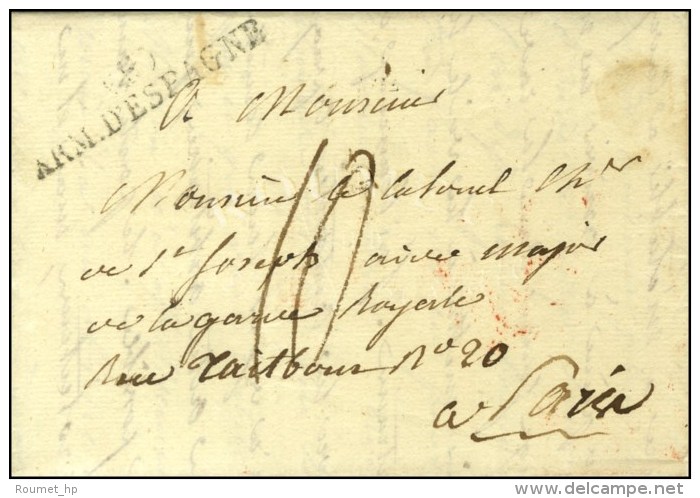 ARM. D'ESPAGNE
A Monsieur
Monsieur le Colonel Ch.er
de St Joseph aide major
de la garde Royale
Rue Taitbout No 20
a Paris
Roumet_hp
delcampe.net